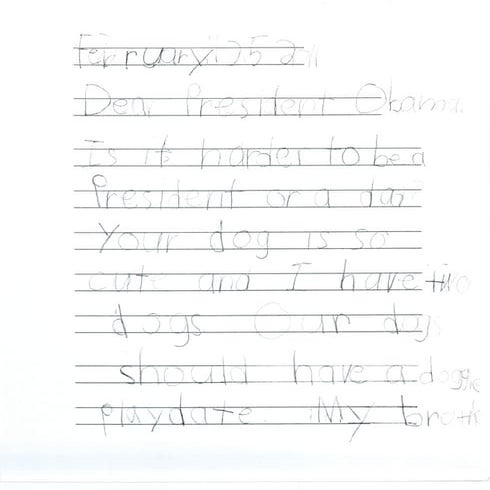 February 25 2011
Dear President Obama.
Is it harder to be a
President or a dad?
Your dog is so
cute and I have two
dogs Our dogs
should have a doggie
playdate. My broth